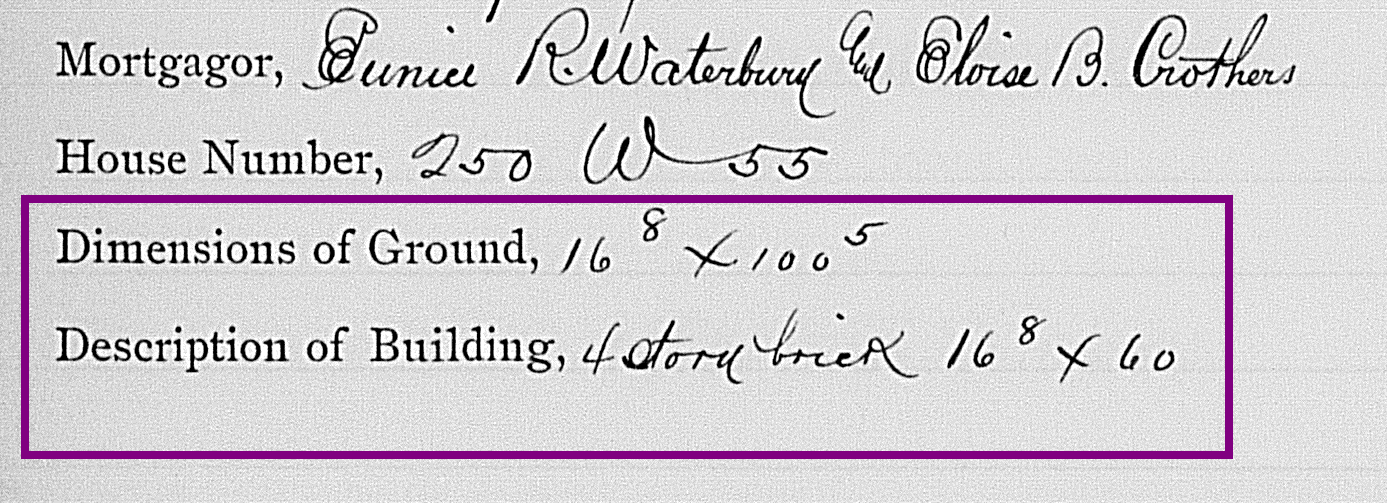 Mortgagor, Eunice R. Waterbury and Eloise B. Crothers
House Number, 250 W 55
Dimensions of Ground, 16⁸ X 100⁵
Description of Building, 4 story brick 16⁸ X 60